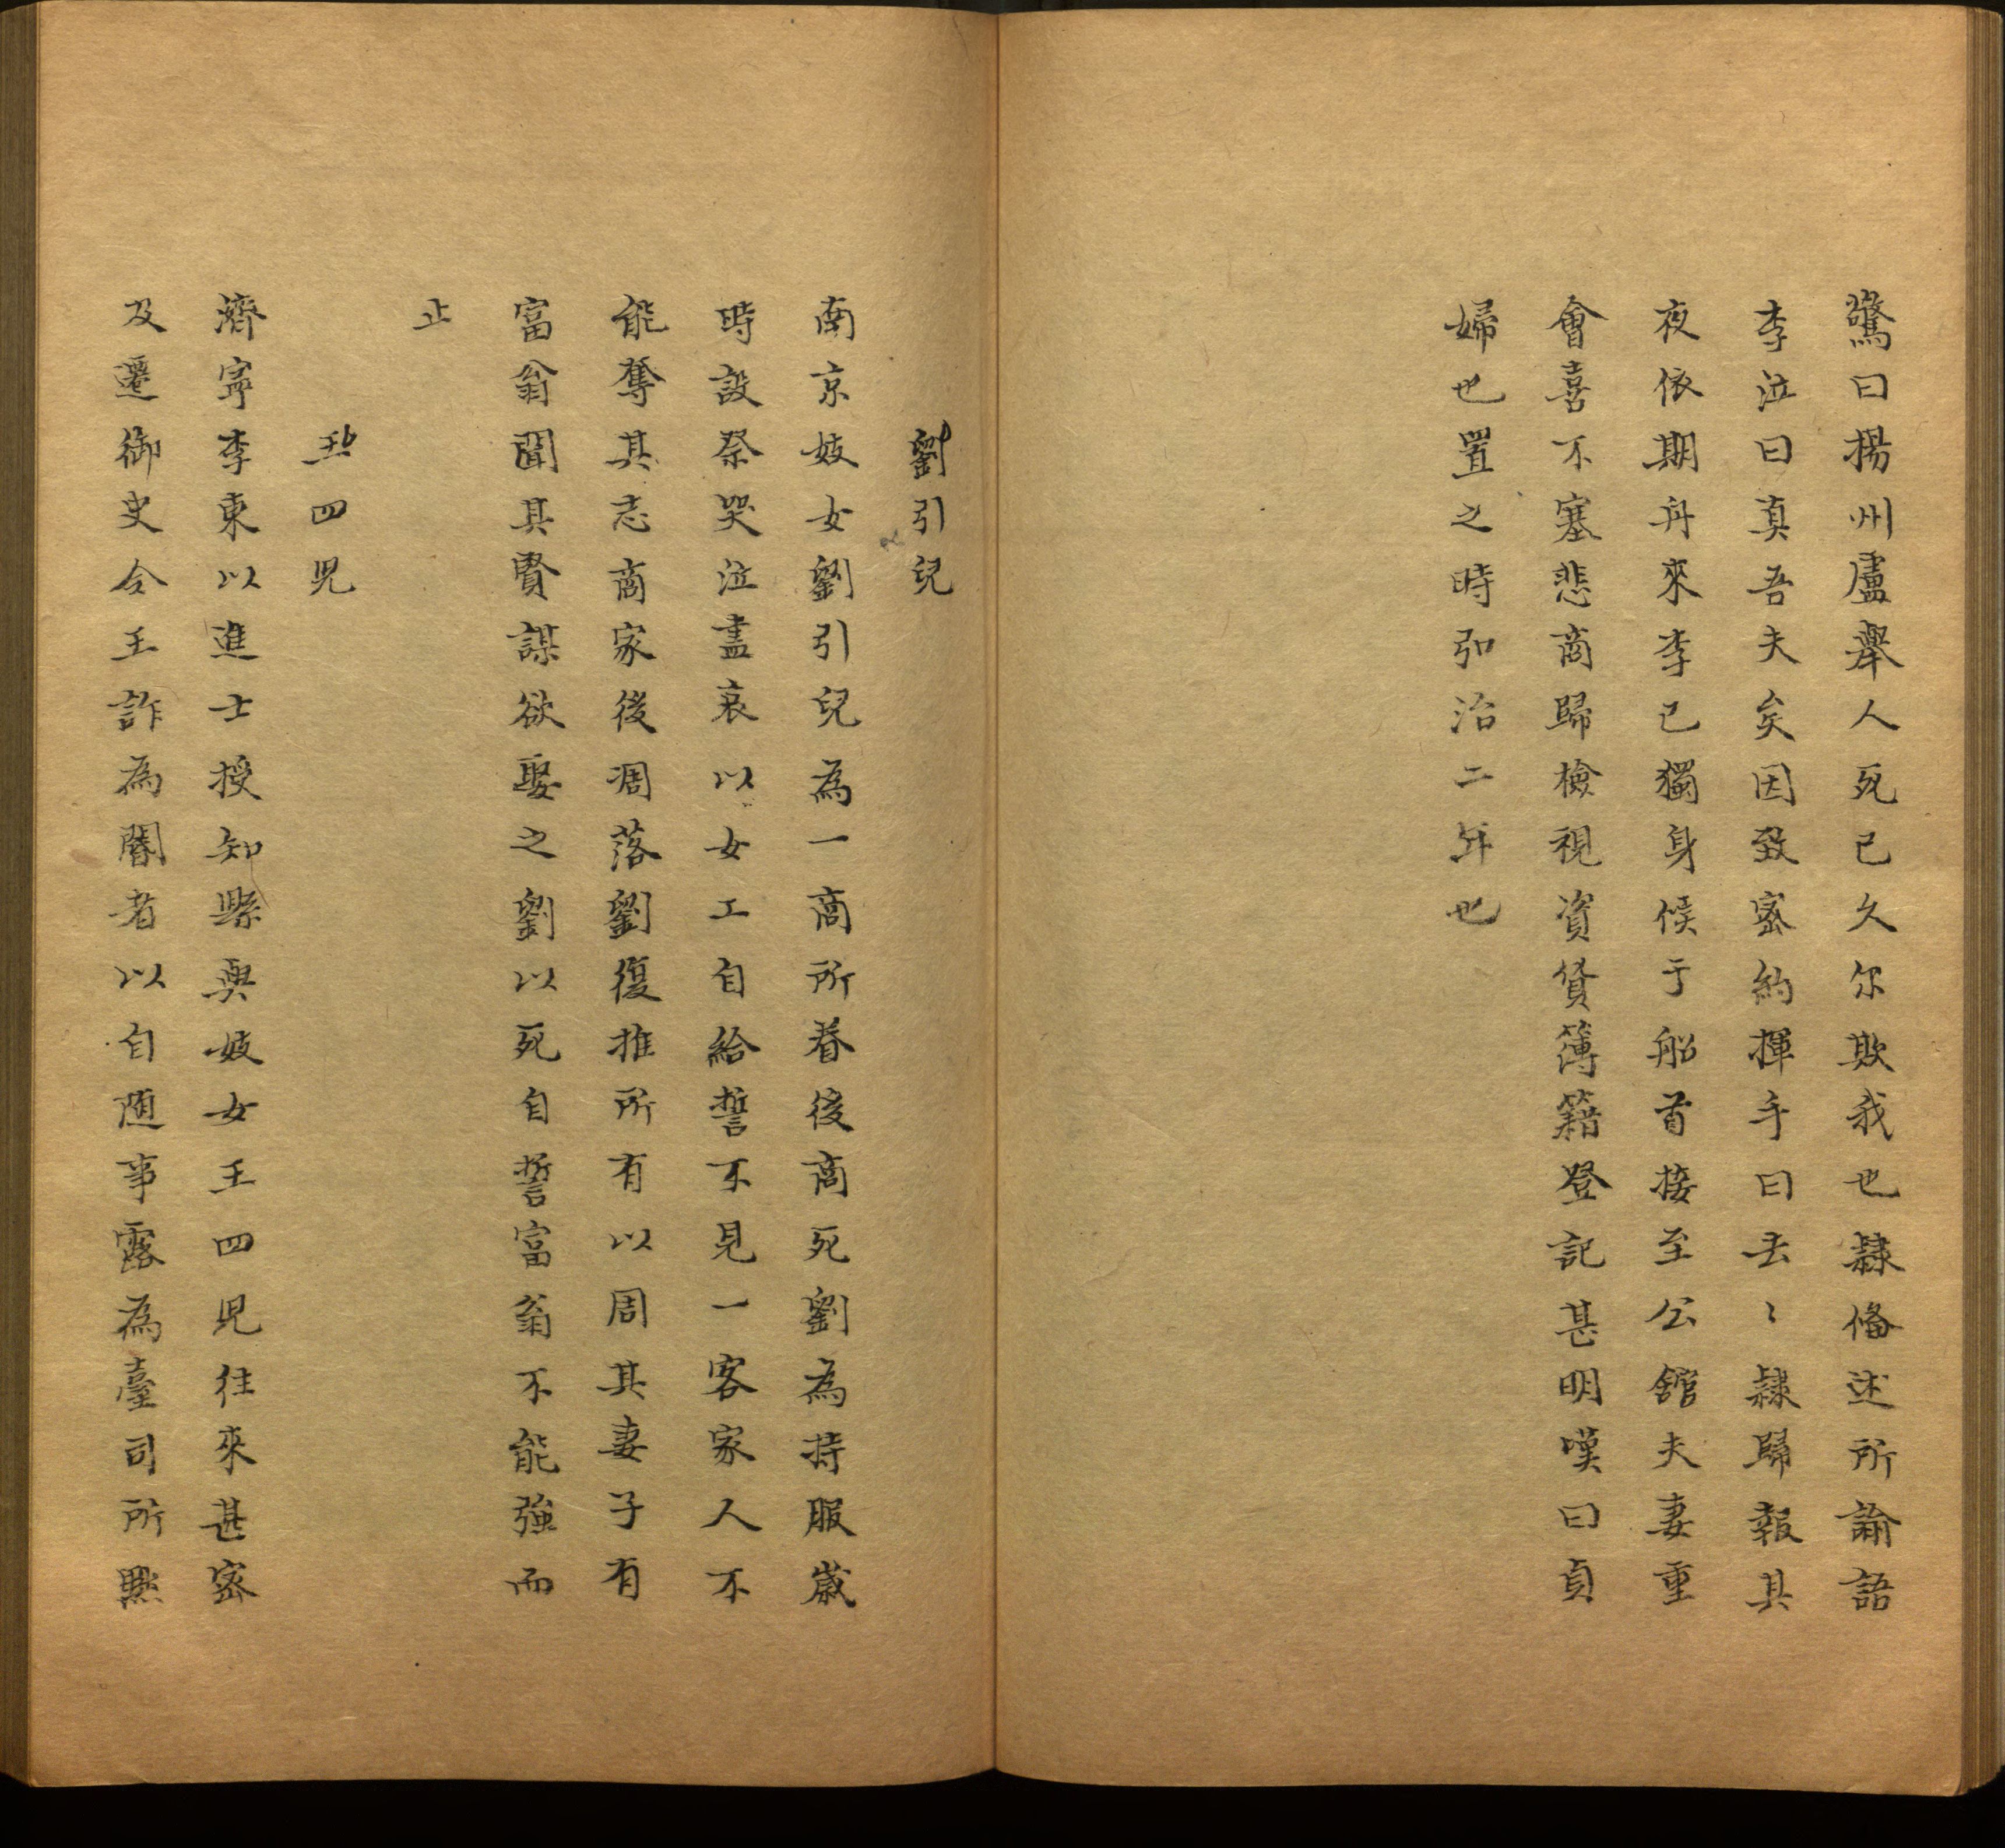 驚曰揚州盧舉人死已久尔欺我也隸俻述所諭語
李泣曰真吾夫矣因致宻約揮手曰去〻隸歸報其
夜依期舟來李已獨身候于船首接至公舘夫妻重
會喜不塞悲商歸檢視資貸簿籍登記甚明嘆曰貞
婦也置之時弘治二年也
劉引兒
南京妓女劉引兒為一商所眷後商死劉為持服歲
時設祭哭泣盡哀以女工自給誓不見一客家人不
能奪其志商家後凋落劉復推所有以周其妻子有
富翁聞其賢謀欲娶之劉以死自誓富翁不能強而
止
王四児
濟寧李東以進士授知縣與妓女王四児往來甚宻
及遷御史令王詐為閽者以自随事露為臺司所㸃